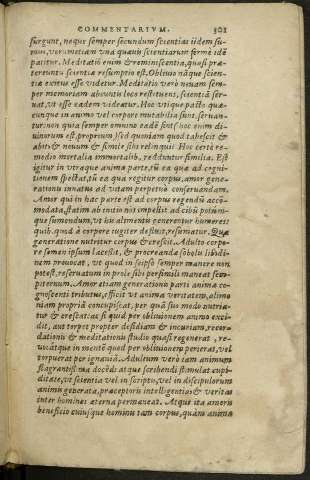 COMMENTARIVM. 101
surgunt, neque semper secundum scientias iidem su-
mus, verumetiam vna quæuis scientiarum ferme idem
patitur. Meditatio enim & reminiscentia, quasi præ-
tereuntis scientiæ resumptio est. Obliuio nāque scien-
tiæ exitus esse videtur. Meditatio verò nouam sem-
per memoriam abeuntis loco restituens, scientiā ser-
uat, vt esse eadem videatur. Hoc vtique pacto quæ-
cunque in animo vel corpore mutabilia sunt, seruan-
tur: non quia semper omnino eadē sint (hoc enim di-
uinorum est proprium) sed quoniam quod tabescit &
abit: & nouum & simile sibi relinquit. Hoc certè re-
medio mortalia immortalib. redduntur similia. Est
igitur in vtraque animæ parte, tū ea quæ ad cogni-
tionem spectat, tū ea qua regitur corpus, amor gene-
rationis innatus ad vitam perpetuò conseruandam.
Amor qui in hac parte est ad corpus regendū accō-
modata, statim ab initio nos impellit ad cibū potum-
que sumendum, vt his alimentis generentur humores:
quib. quod à corpore iugiter defluit, resumatur. Qua
generatione nutritur corpus & crescit. Adulto corpo-
re semen ipsum lacessit, & procreandæ sobolis libidi-
nem prouocat, vt quod in seipso semper manere non
potest, reseruatum in prole sibi persimili maneat sem-
piternum. Amor etiam generationis parti animæ co-
gnoscenti tributus, efficit vt anima veritatem, alimo-
niam propriā concupiscat, per quā suo modo nutria-
tur & crescat: ac si quid per obliuionem animo exci-
dit, aut torpet propter desidiam & incuriam, recor-
dationis & meditationis studio quasi regenerat, re-
uocátque in mentē quod per obliuionem perierat, vel
torpuerat per ignauiā. Adultum verò iam animum
flagrantissima docēdi atque scribendi stimulat cupi-
ditate, vt scientia vel in scriptis, vel in discipulorum
animis generata, præceptoris intelligentia & veritas
inter homines æterna permaneat. Atque ita amoris
beneficio cuiusque hominis tam corpus, quàm anima